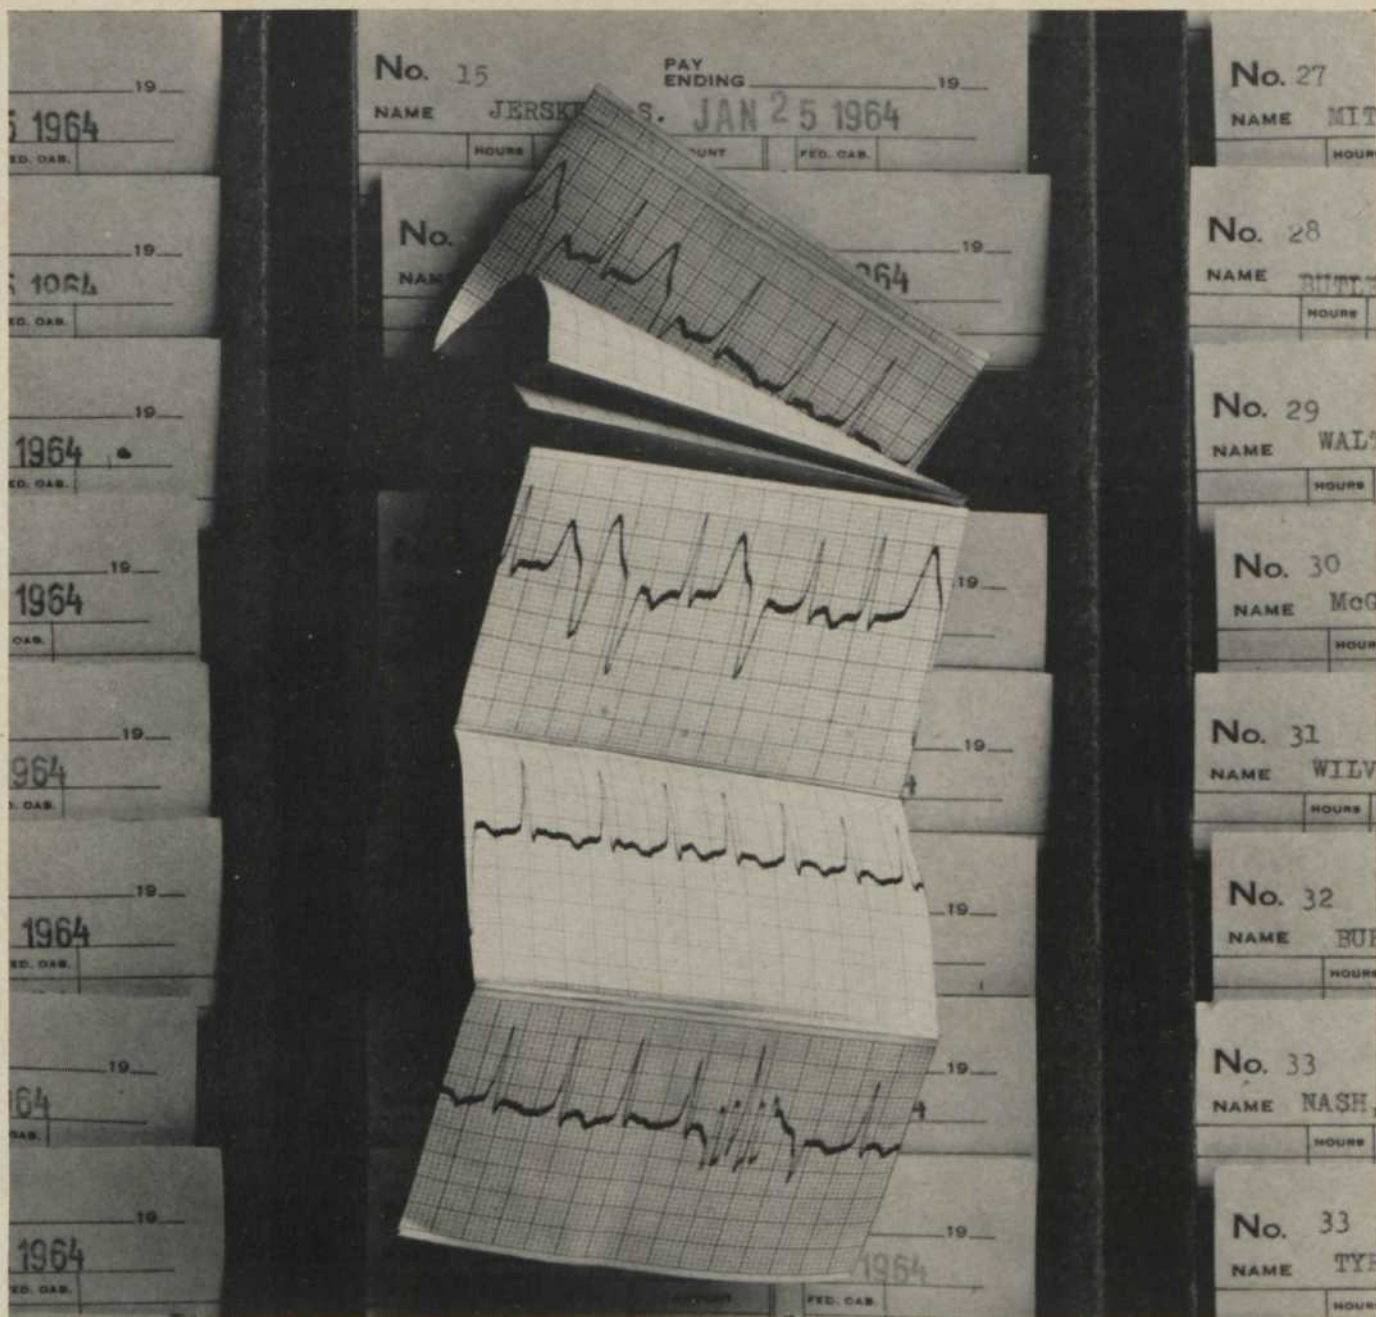 19
1964
FED. OAB.
19
1964
FED. OAB.
19
1964
FED. OAB.
19
1964
OAB.
19
964
OAB.
19
1964
FED. OAB.
19
64
OAB.
19
1964
FED. OAB.
No. 15 PAY ENDING 19
NAME S. JAN 25 1964
HOURS FED. OAB.
No. 19
64
19
19
19
19
19
1964
FED. OAB.
No. 27
NAME MIT
HOUR
No. 28
NAME BUTLE
HOURS
No. 29
NAME WALT
HOURS
No. 30
NAME McG
HOUR
No. 31
NAME WILV
HOURS
No. 32
NAME
HOURS
No. 33
NAME NASH,
HOURS
No. 33
NAME TYR
HOUR